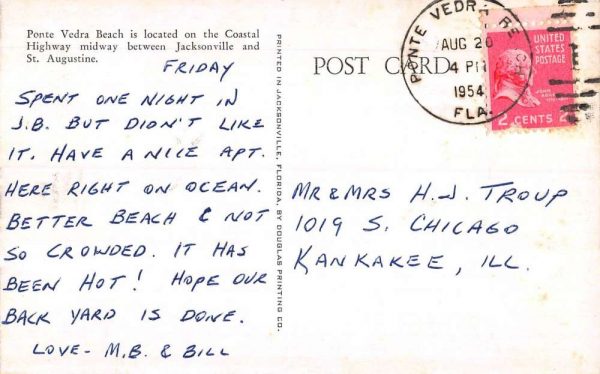 Ponte Vedra Beach is located on the Coastal
Highway midway between Jacksonville and
St. Augustine.
FRIDAY
SPENT ONE NIGHT IN
J.B. BUT DIDN'T LIKE
IT. HAVE A NICE APT.
HERE RIGHT ON OCEAN.
BETTER BEACH & NOT
SO CROWDED. IT HAS
BEEN HOT! HOPE OUR
BACK YARD IS DONE.
LOVE- M.B. & BILL
PRINTED IN JACKSONVILLE, FLORIDA, BY DOUGLAS PRINTING CO.
POST CARD
PONTE VEDRA BEACH
AUG 20
4 PM
1954
FLA.
UNITED
STATES
POSTAGE
JOHN
2 CENTS 2
MR & MRS H.J. TROUP
1019 S. CHICAGO
KANKAKEE, ILL.